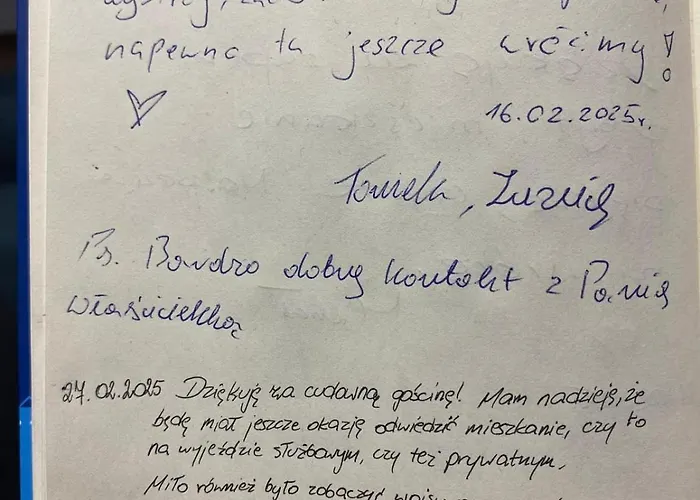 napewno tu jeszcze wrócimy!
16.02.2025r.
Ps. Bardzo dobry kontakt z Panią
Właścicielką
27.02.2025 Dziękuję za cudowną gościnę! Mam nadzieję, że
będę miał jeszcze okazję odwiedzić mieszkanie, czy to
na wyjeździe służbowym, czy też prywatnym.
Miło również było zobaczyć